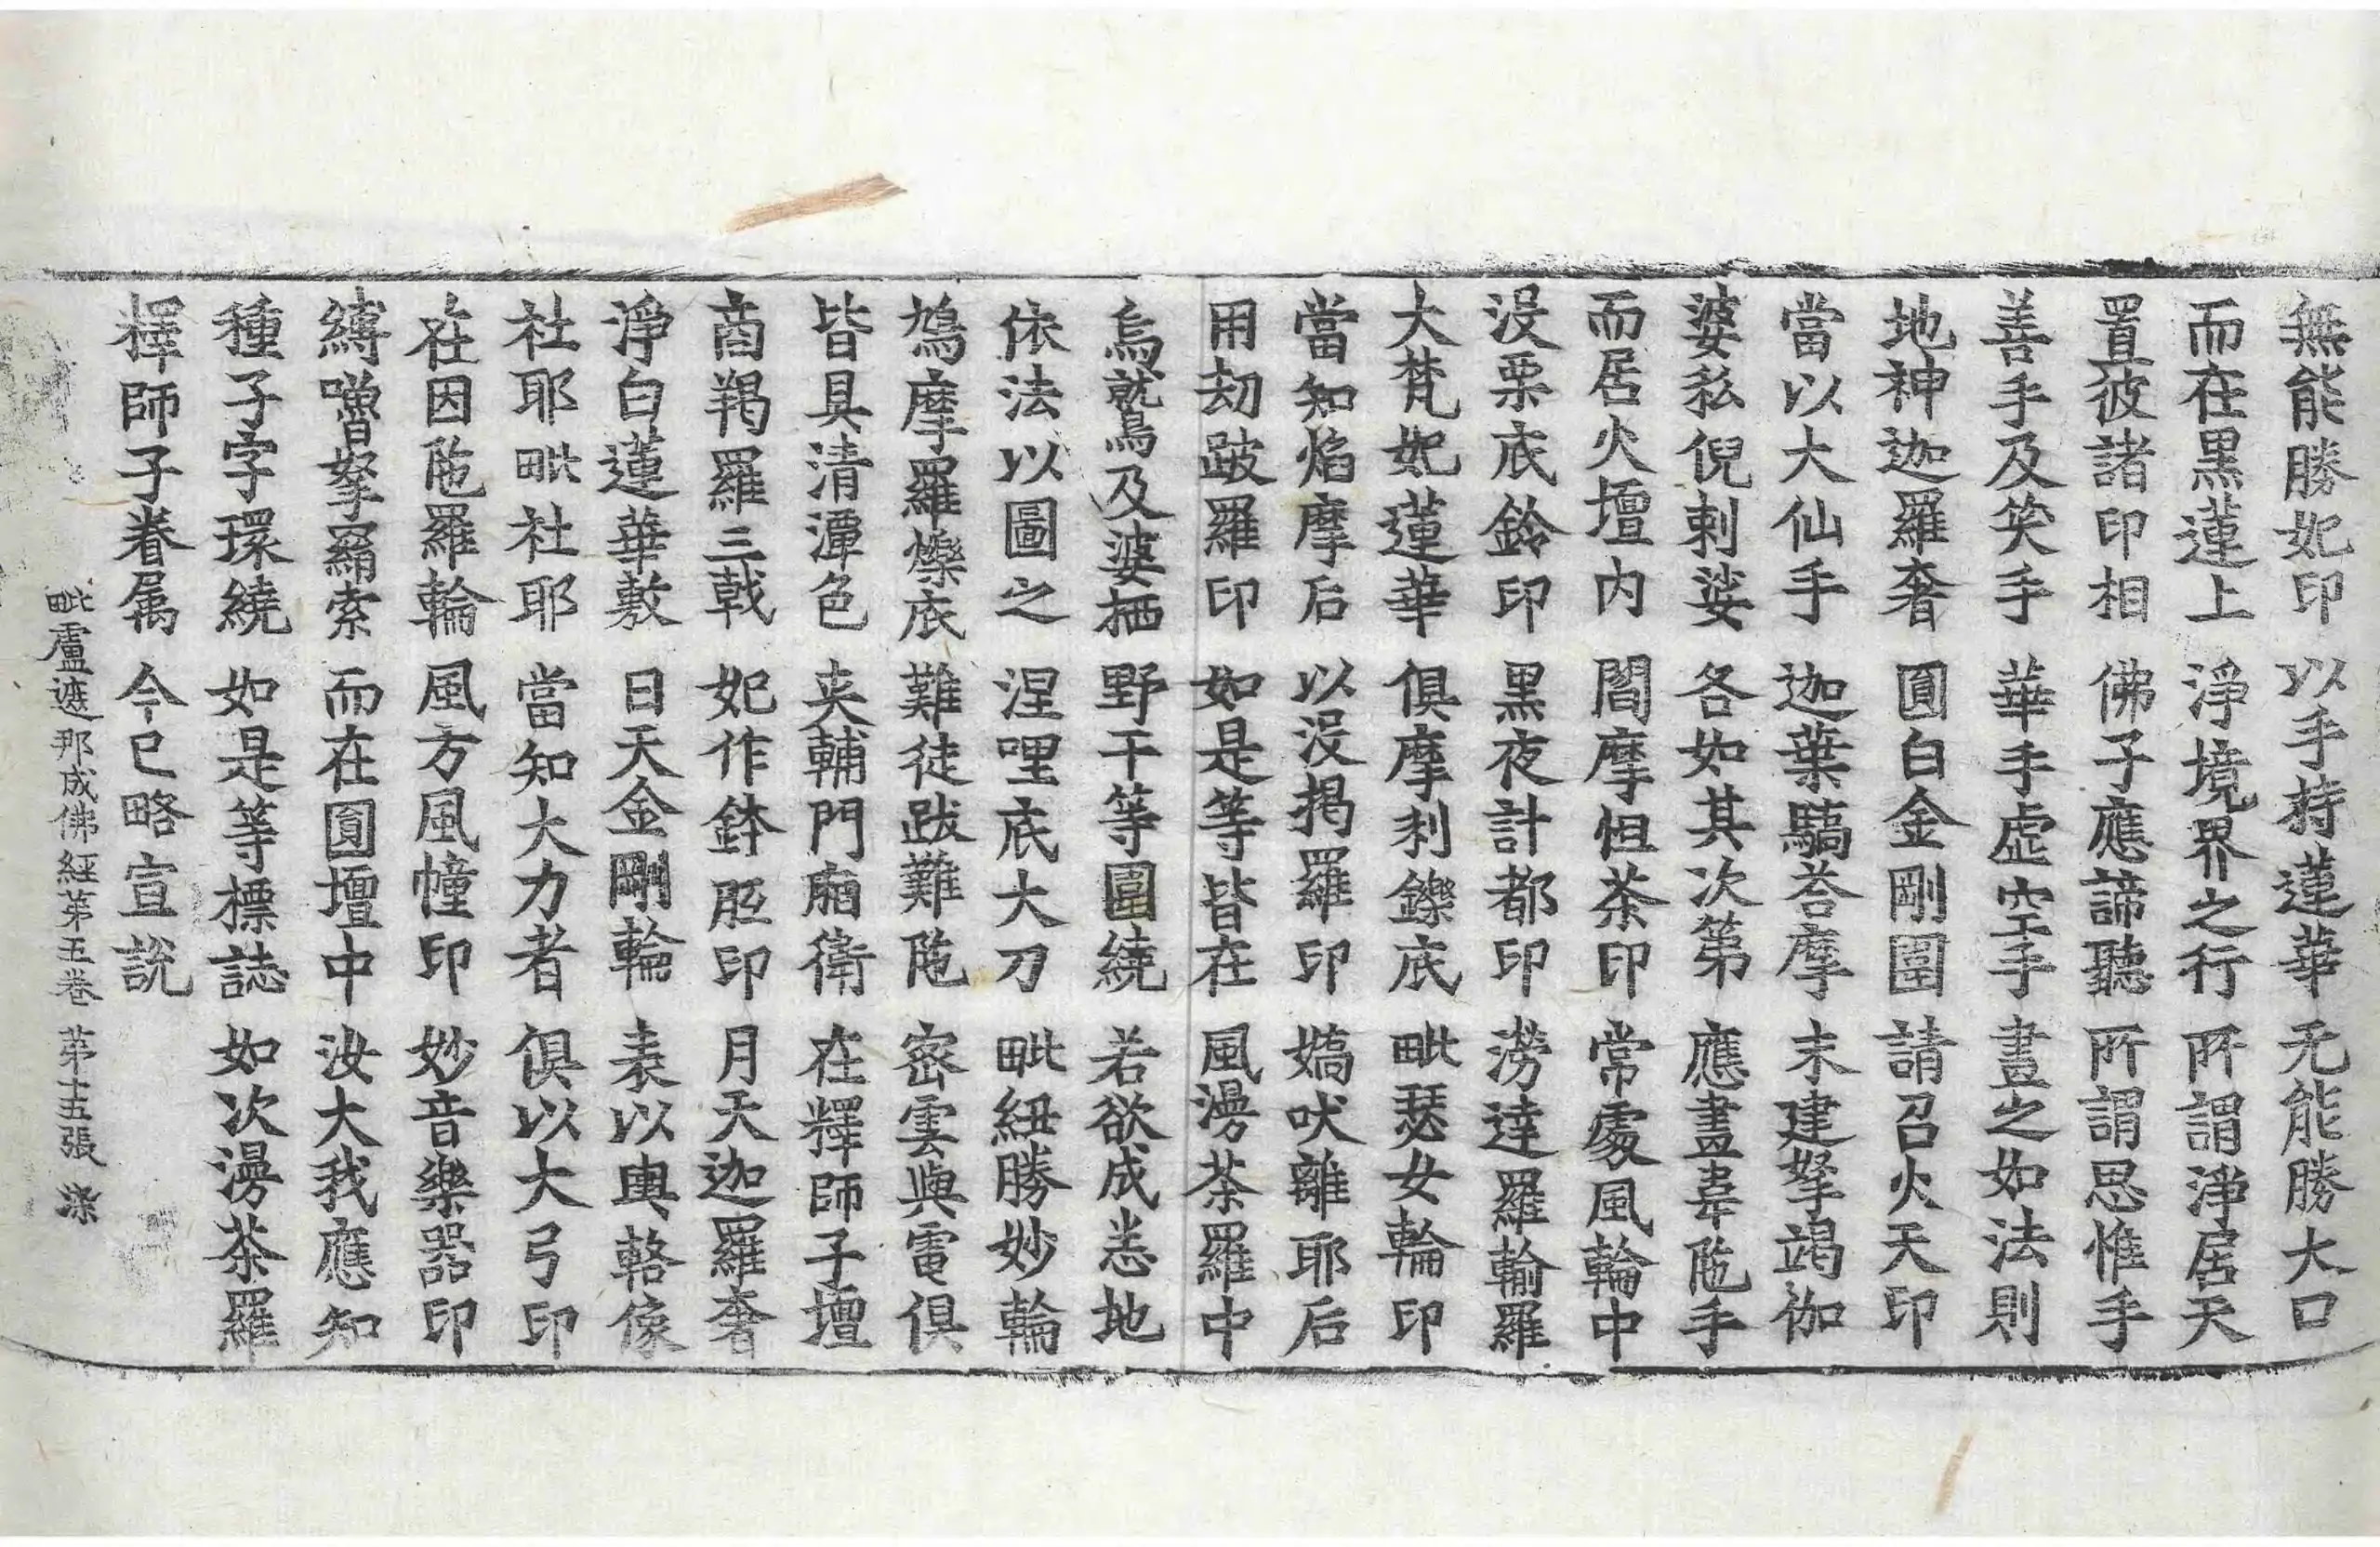 無能勝妃印 以手持蓮華 无能勝大口
而在黒蓮上 淨境界之行 所謂淨居天
置彼諸印相 佛子應諦聽 所謂思惟手
善手及笑手 華手虛空手 畫之如法則
地神迦羅奢 圓白金剛圍 請召火天印
當以大仙手 迦葉驕荅摩 末建拏竭伽
婆私倪剌娑 各如其次第 應畫韋陁手
而居火壇内 閻摩怛荼印 常處風輪中
没栗底鈴印 黒夜計都印 澇達羅輸羅
大梵妃蓮華 俱摩利鑠底 毗瑟女輪印
當知焰摩后 以没揭羅印 嬌吠離耶后
用劫跛羅印 如是等皆在 風漫荼羅中
烏鷲及婆栖 野干等圍繞 若欲成悉地
依法以圖之 涅哩底大刀 毗紐勝妙輪
鳩摩羅爍底 難徒跋難陁 密雲與電俱
皆具清潭色 夾輔門廂衛 在釋師子壇
商羯羅三戟 妃作鉢胝印 月天迦羅奢
淨白蓮華敷 日天金剛輪 表以輿輅像
社耶毗社耶 當知大力者 俱以大弓印
在因陁羅輪 風方風幢印 妙音樂器印
縛嚕拏羂索 而在圓壇中 汝大我應知
種子字環繞 如是等標誌 如次漫荼羅
釋師子眷属 今已略宣說
毗盧遮那成佛經第五卷 第十五張 漆